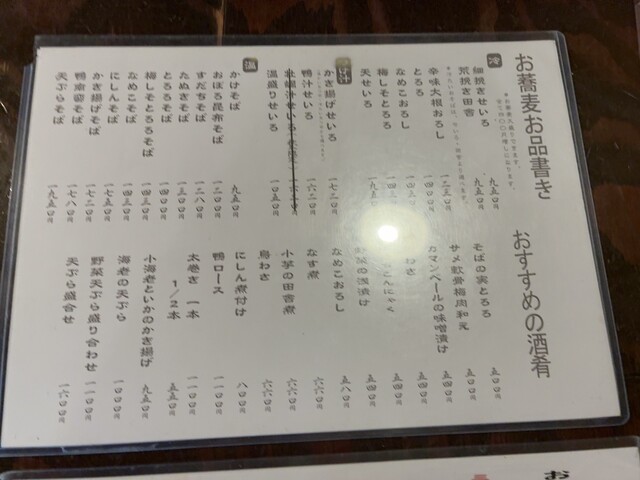 お蕎麦お品書き
冷
細挽きせいろ 九五〇円
荒挽き田舎 九五〇円
辛味大根おろし 一二三〇円
とろろ 一四〇〇円
なめこおろし
梅しそとろろ
天せいろ
かき揚げせいろ 一七二〇円
鴨汁せいろ 一六二〇円
温盛りせいろ 一〇五〇円
温
かけそば 九五〇円
おぼろ昆布そば 一二〇〇円
すだちそば 一二八〇円
たぬきそば 一三〇〇円
とろろそば 一四〇〇円
梅しそとろろそば 一四三〇円
なめこそば 一四三〇円
にしんそば 一七五〇円
かき揚げそば 一七二〇円
鴨南蛮そば 一七八〇円
天ぷらそば 一九五〇円
おすすめの酒肴
そばの実とろろ 五〇〇円
サメ軟骨梅肉和え 五〇〇円
カマンベールの味噌漬け 五四〇円
わさ 五四〇円
こんにゃく 五四〇円
野菜の浅漬け 五四〇円
なめこおろし 五八〇円
なす煮 六六〇円
小芋の田舎煮 六六〇円
鳥わさ 六六〇円
にしん煮付け 八〇〇円
鴨ロース 一一〇〇円
太巻き 一本 一一〇〇円
1/2本 五五〇円
小海老といかのかき揚げ 九五〇円
海老の天ぷら 一〇〇〇円
野菜天ぷら盛り合わせ 一一〇〇円
天ぷら盛合せ 一六〇〇円
お